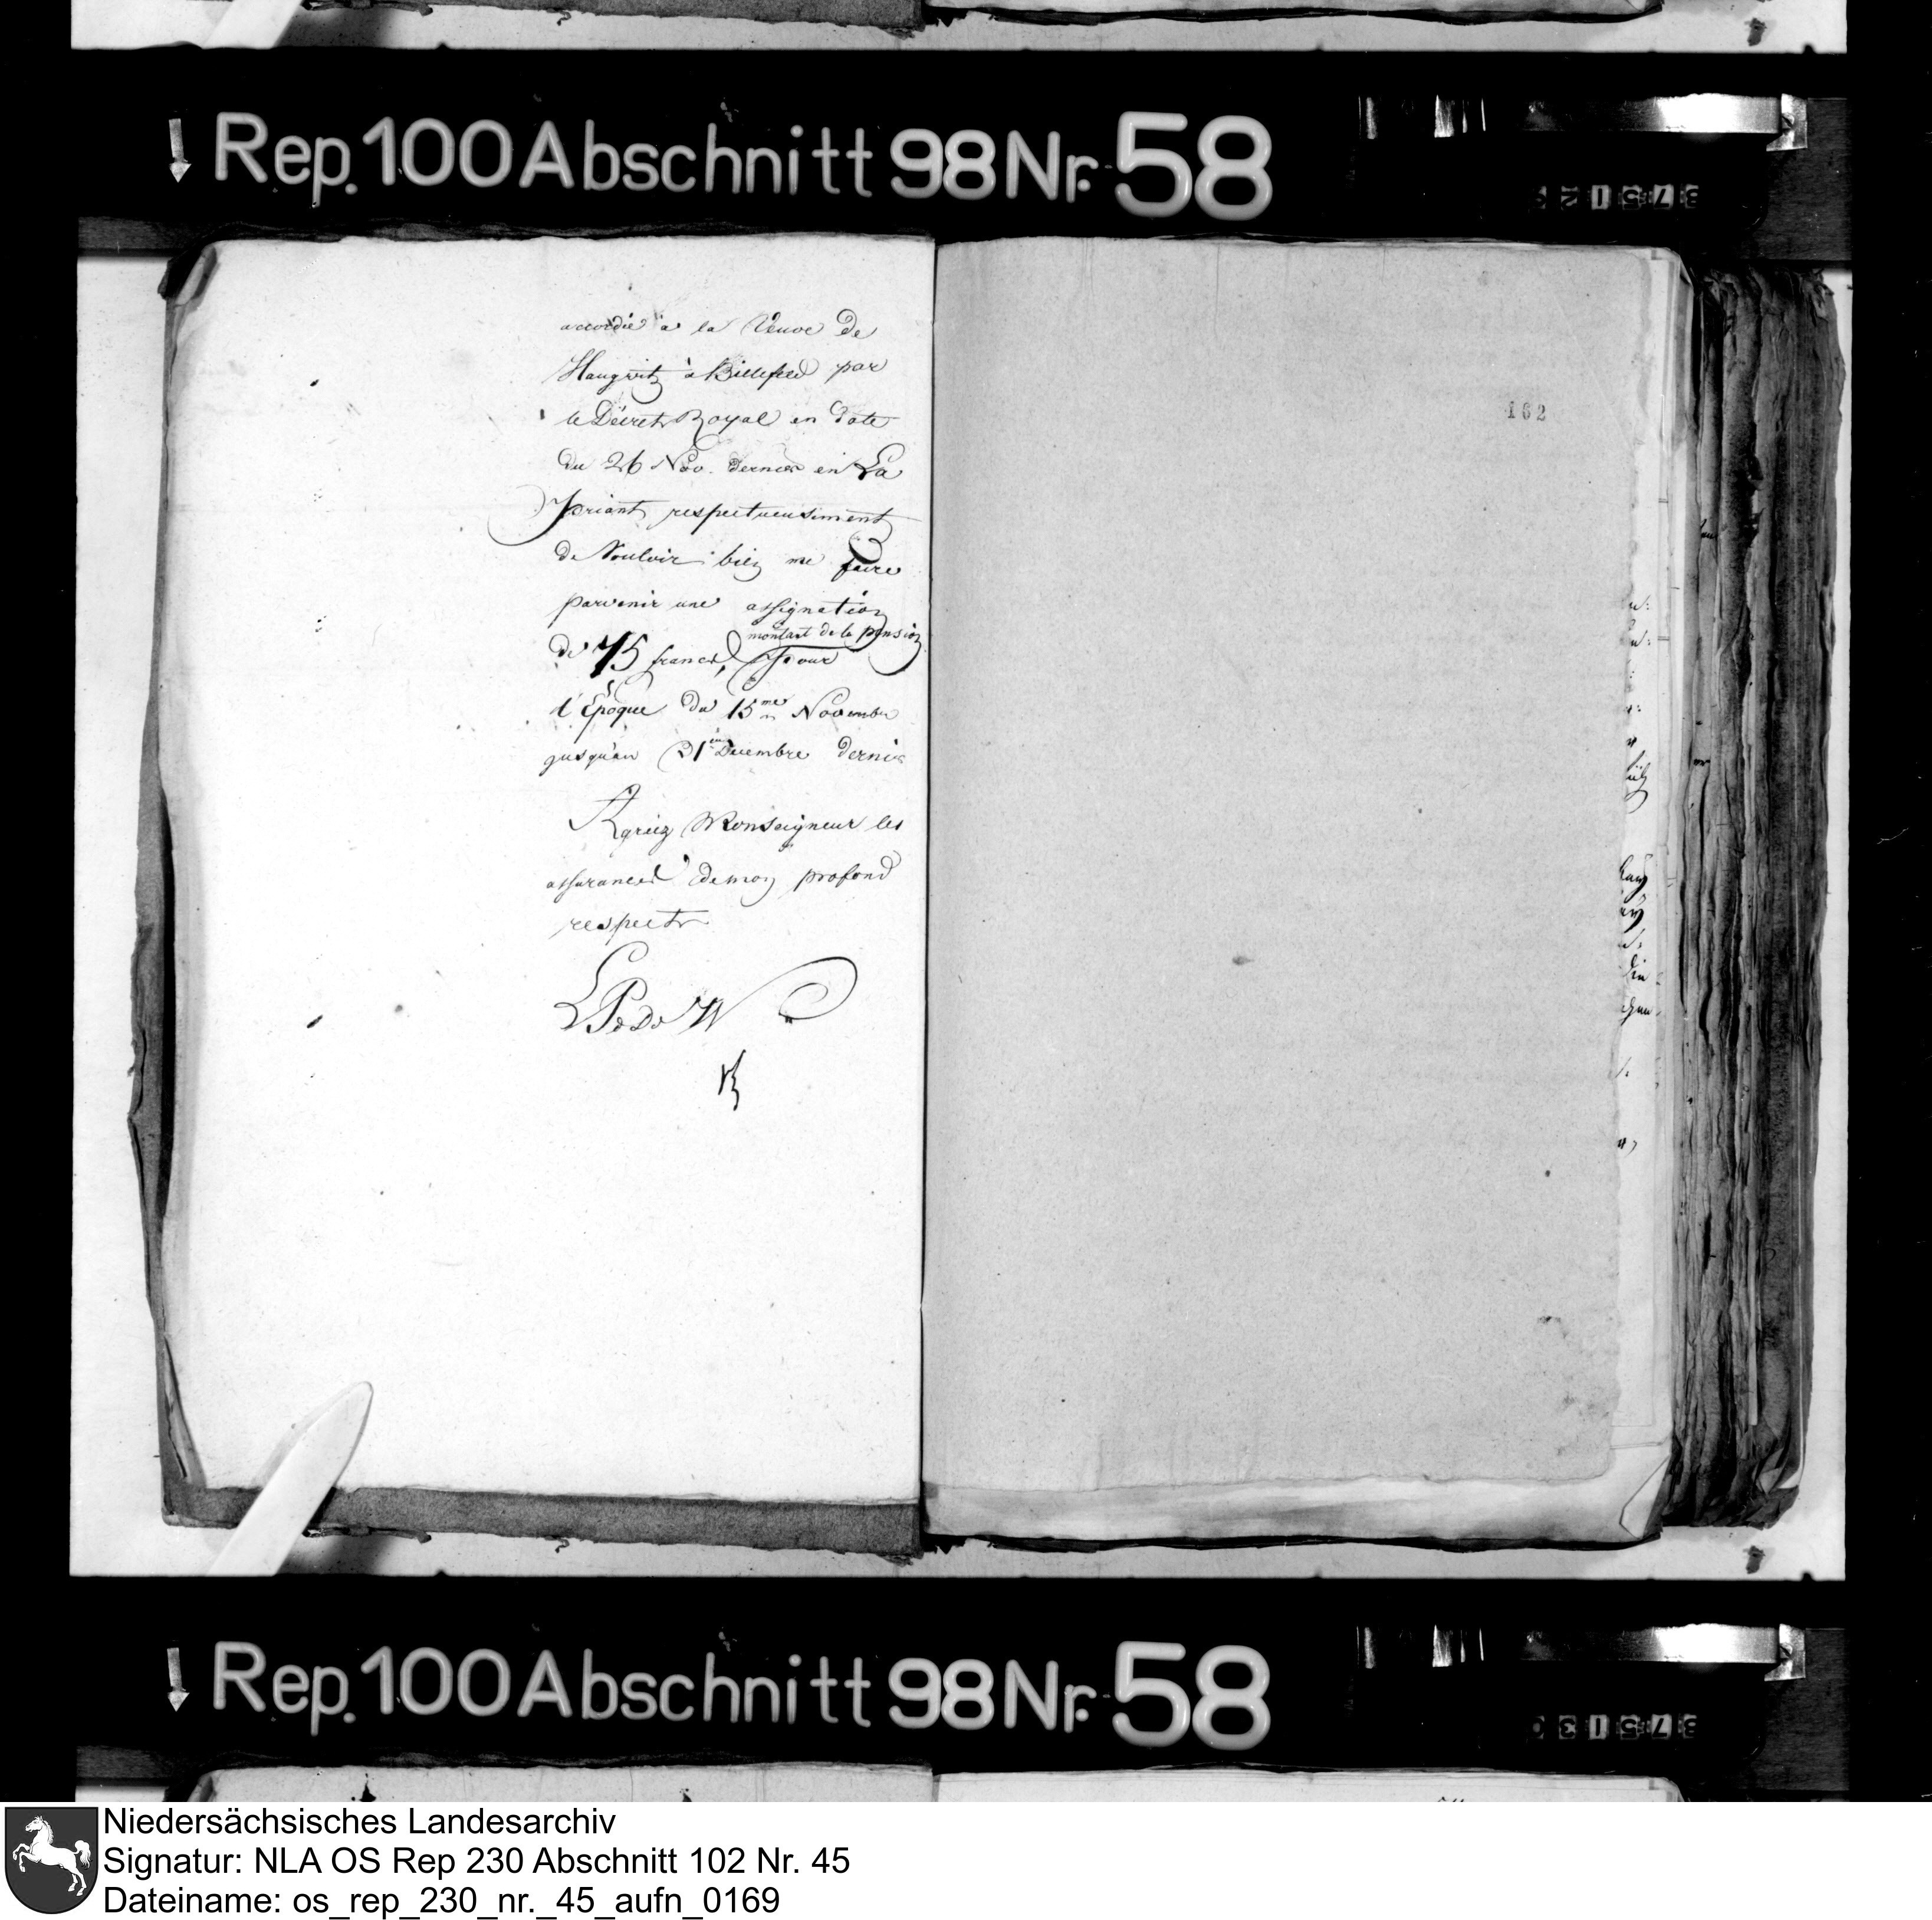 Rep. 100 Abschnitt 98 Nr. 58
accordée a la Veuve de
Haugwitz à Bielefeld par
le Décret Royal en date
du 26 Nov. dernier en La
priant respectueusement
de Vouloir bien me faire
parvenir une assignation
montant de la pension
de 75 francs, pour
l'Epoque du 15me Novembre
jusqu'au 31 Decembre dernier
Agréez Monseigneur les
assurances de mon profond
respect
LPdDW
162
Rep. 100 Abschnitt 98 Nr. 58
Niedersächsisches Landesarchiv
Signatur: NLA OS Rep 230 Abschnitt 102 Nr. 45
Dateiname: os_rep_230_nr._45_aufn_0169